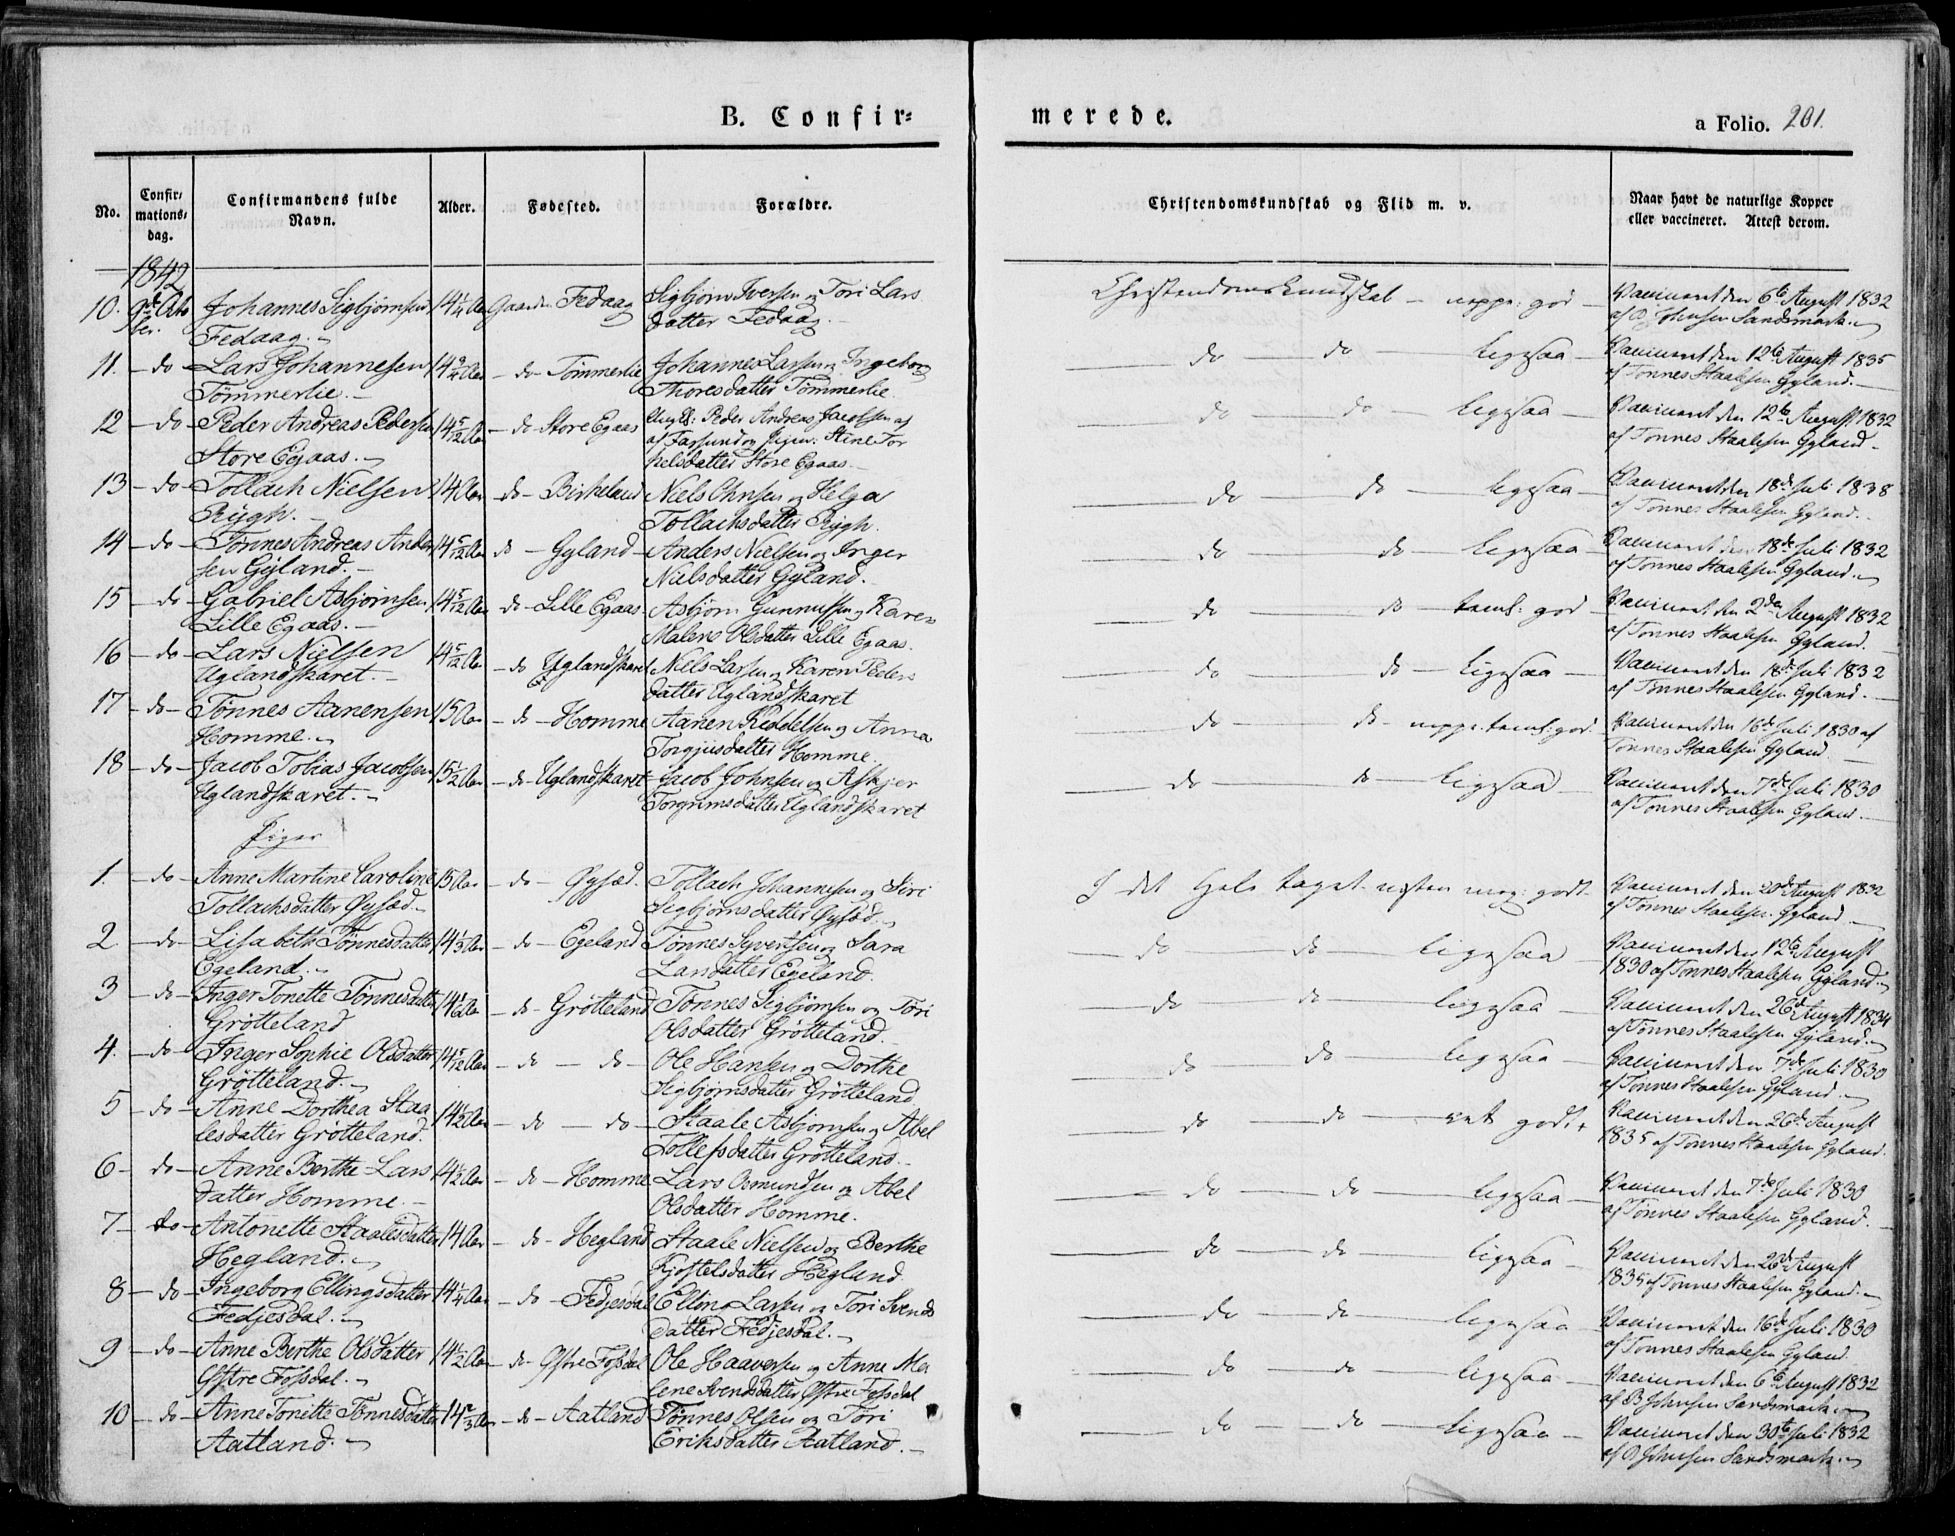 B. Confirmerede.
a Folio. 201.
No.
Confirmationsdag.
Confirmandens fulde Navn.
Alder.
Fødested.
Forældre.
Christendomskundskab og Flid m. v.
Naar havt de naturlige Kopper eller vaccineret. Attest derom.
1842
10. 9de Octo Johannes Sigbjørnsen 14 1/4 Aar Gaarden Fedaag Sigbjørn Iversen og Tori Lars Christendomskundskab – god – Vaccineret den 6te August 1832
ber. Fedaag. datter Fedaag. af B. Johnsen Sandsmark.
11. – do – Lars Johannesen 14 Aar – do – Tømmerlie Johannes Larsen og Ingeborg do – do – ligesaa – Vaccineret den 12te August 1835
Tømmerlie. Thoresdatter Tømmerlie af Tønnes Staalesen Gyland.
12 – do – Peder Andreas Pedersen 14 5/12 Aar – do Store Egaas Ungk: Peder Andreas Jacobsen af do – do – ligesaa – Vaccineret den 12te August 1832
Store Egaas. af Farsund og Pigen: Stine Tor af Tønnes Staalesen Gyland
kelsdatter Store Egaas
13 – do – Tollach Nielsen 14 Aar – do – Birkeland Niels Ohnsen og Helga do – do – ligesaa – Vaccineret den 18de Juli 1838
Rygh. Tollachsdatter Rygh. af Tønnes Staalesen Gyland.
14 – do – Tønnes Andreas Ander 14 5/12 Aar do – Gyland – Anders Nielsen og Inger do – do – ligesaa – Vaccineret den 18de Juli 1832
sen Gyland. Nielsdatter Gyland. af Tønnes Staalesen Gyland.
15 – do – Gabriel Asbjørnsen 14 5/12 Aar – do – Lille Egaas Asbjørn Gunnufsen og Karen do – do – taml: god Vaccineret den 2den August 1832
Lille Egaas. Malene Olsdatter Lille Egaas. af Tønnes Staalesen Gyland.
16 – do – Lars Nielsen 14 5/12 Aar – do Uglandskaret Niels Larsen og Karen Peders do – do – ligesaa – Vaccineret den 18de Juli 1832
Uglandskaret. datter Uglandskaret af Tønnes Staalesen Gyland.
17 – do – Tønnes Aanensen 15 Aar – do – Homme Aanen Reddelsen og Anna do – do – neppe taml: god. Vaccineret den 16de Juli 1830 af
Homme. Torgjusdatter Homme Tønnes Staalesen Gyland.
18 – do – Jacob Tobias Jacobsen 15 1/2 Aar – do Uglandskaret Jacob Johnsen og Askjer do – do – ligesaa – Vaccineret den 7de Juli 1830
Uglandskaret. Torgrimsdatter Uglandskaret af Tønnes Staalesen Gyland.
Piger
1. – do – Anne Martine Caroline 15 Aar – do – Øysæd. Tollach Johannesen og Siri I det Hele taget næsten meg: godt. Vaccineret den 20de August 1832
Tollachsdatter Øysæd. Sigbjørnsdatter Øysæd. af Tønnes Staalesen Gyland
2 – do – Lisabeth Tønnesdatter 14 1/3 Aar – do – Egeland Tønnes Syvertsen og Sara do – do – ligesaa – Vaccineret den 12te August
Egeland. Larsdatter Egeland. 1830 af Tønnes Staalesen Gyland.
3 – do – Inger Tonette Tønnesdatter 14 1/6 Aar – do – Grøtteland Tønnes Sigbjørnsen og Tori do – do – ligesaa – Vaccineret den 26de August 1834
Grøtteland Olsdatter Grøtteland. af Tønnes Staalesen Gyland.
4. – do – Inger Sophie Olsdatter 14 5/12 Aar – do – do – Ole Hansen og Dorthe do – do – ligesaa – Vaccineret den 7de Juli 1830
Grøtteland. Sigbjørnsdatter Grøtteland af Tønnes Staalesen Gyland.
5 – do – Anne Dorthea Staa 14 1/2 Aar – do – do – Staale Asbjørnsen og Abel do – do – ret godt. Vaccineret den 26de August
lesdatter Grøtteland. Tollefsdatter Grøtteland. 1835 af Tønnes Staalesen Gyland.
6 – do – Anne Berthe Lars 14 1/2 Aar – do – Homme Lars Osmundsen og Abel do – do – ligesaa – Vaccineret den 7de Juli 1830
datter Homme. Olsdatter Homme. af Tønnes Staalesen Gyland.
7 – do – Antonette Staalesdatter 14 Aar – do – Hegland Staale Nielsen og Berthe do – do – ligesaa – Vaccineret den 26de August
Hegland. Kjøstelsdatter Hegland 1835 af Tønnes Staalesen Gyland.
8 – do – Ingeborg Ellingsdatter 14 1/4 Aar – do – Fedjesdal Elling Larsen og Tori Svends do – do – ligesaa – Vaccineret den 16de Juli 1830
Fedjesdal. datter Fedjesdal. af Tønnes Staalesen Gyland
9 – do – Anne Berthe Olsdatter 14 1/2 Aar – do – Østre Fossdal Ole Haaversen og Anne Ma do – do – ligesaa – Vaccineret den 6te August 1832
Østre Fossdal. lene Svendsdatter Østre Fossdal af B Johnsen Sandsmark.
10 – do – Anne Tonette Tønnesdatter 14 2/3 Aar – do – Aatland Tønnes Olsen og Tori do – do – ligesaa – Vaccineret den 30te Juli 1832
Aatland. Eriksdatter Aatland. af B Johnsen Sandsmark.